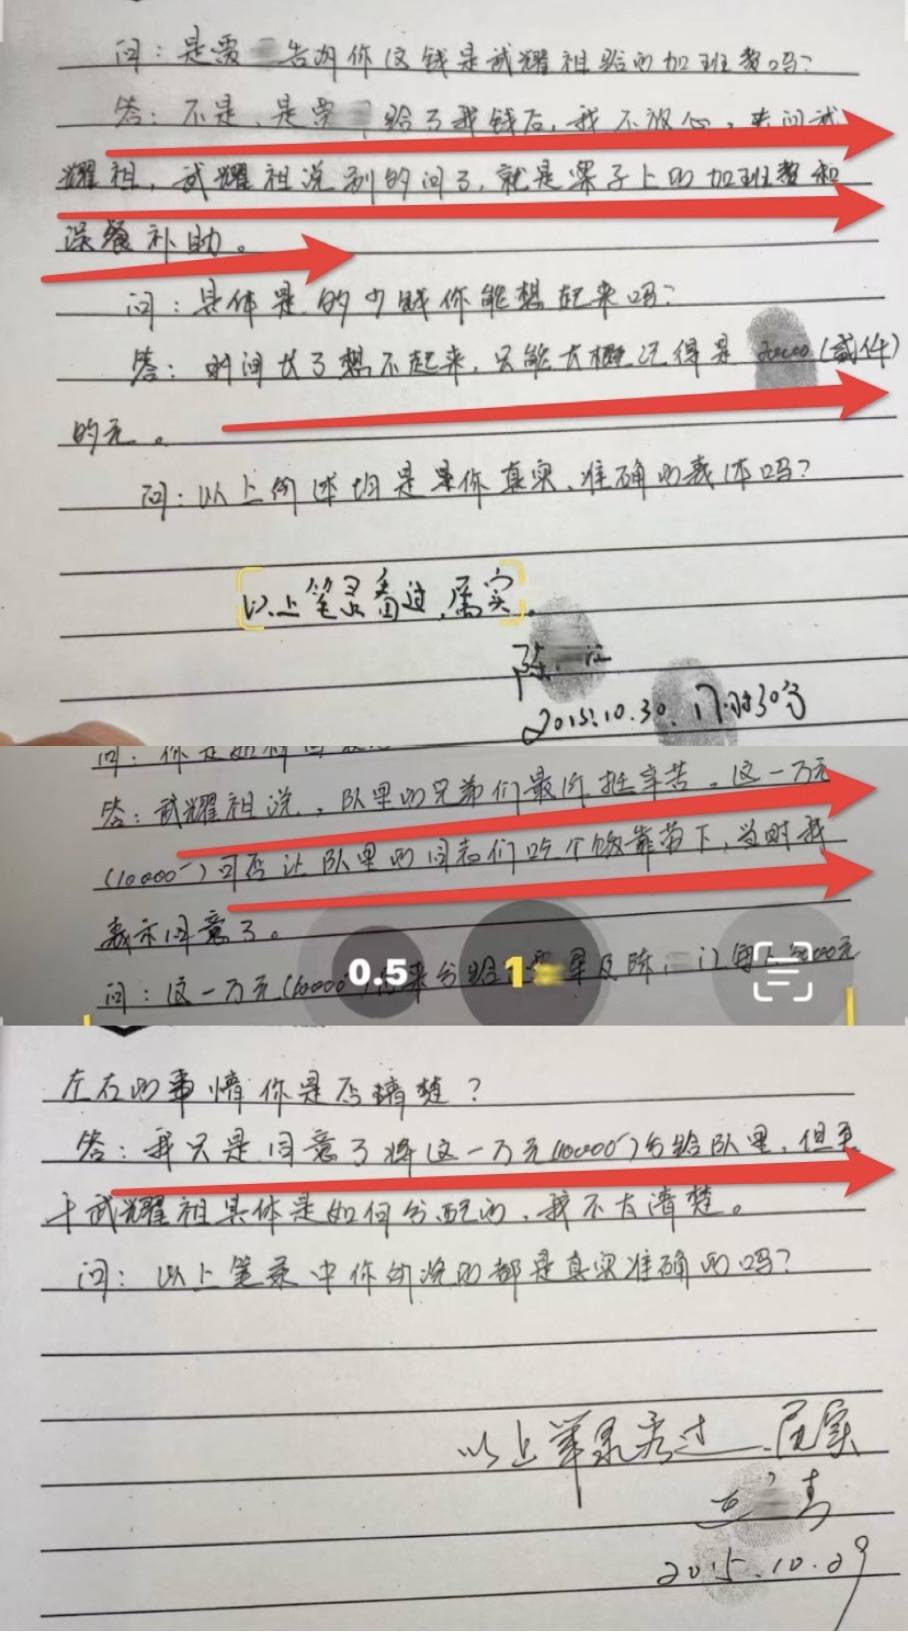 问：是贾 告诉你这钱是武耀祖给的加班费吗？
答：不是，是贾 给了我钱后，我不放心，去问武
耀祖，武耀祖说别的问了，就是案子上的加班费和
误餐补助。
问：具体是 的少钱你能想起来吗？
答：时间长了想不起来，只能大概记得是 2000（贰仟）
的元。
问：以上所述均是 你真实、准确的表述吗？
以上笔录看过，属实。
陈 江
2015.10.30. 17时30分
问：你是如何
答：武耀祖说，队里的兄弟们最近挺辛苦。这一万元
（10000）可否让队里的同志们吃个饭 ，当时我
表示同意了。
0.5 1
问：这一万元（10000） 来分给 星及陈 江每人 000元
左右的事情你是否清楚？
答：我只是同意了将这一万元（10000）分给队里，但至
于武耀祖具体是如何分配的，我不大清楚。
问：以上笔录中你所说的都是真实准确的吗？
以上笔录看过 属实
2015.10.29